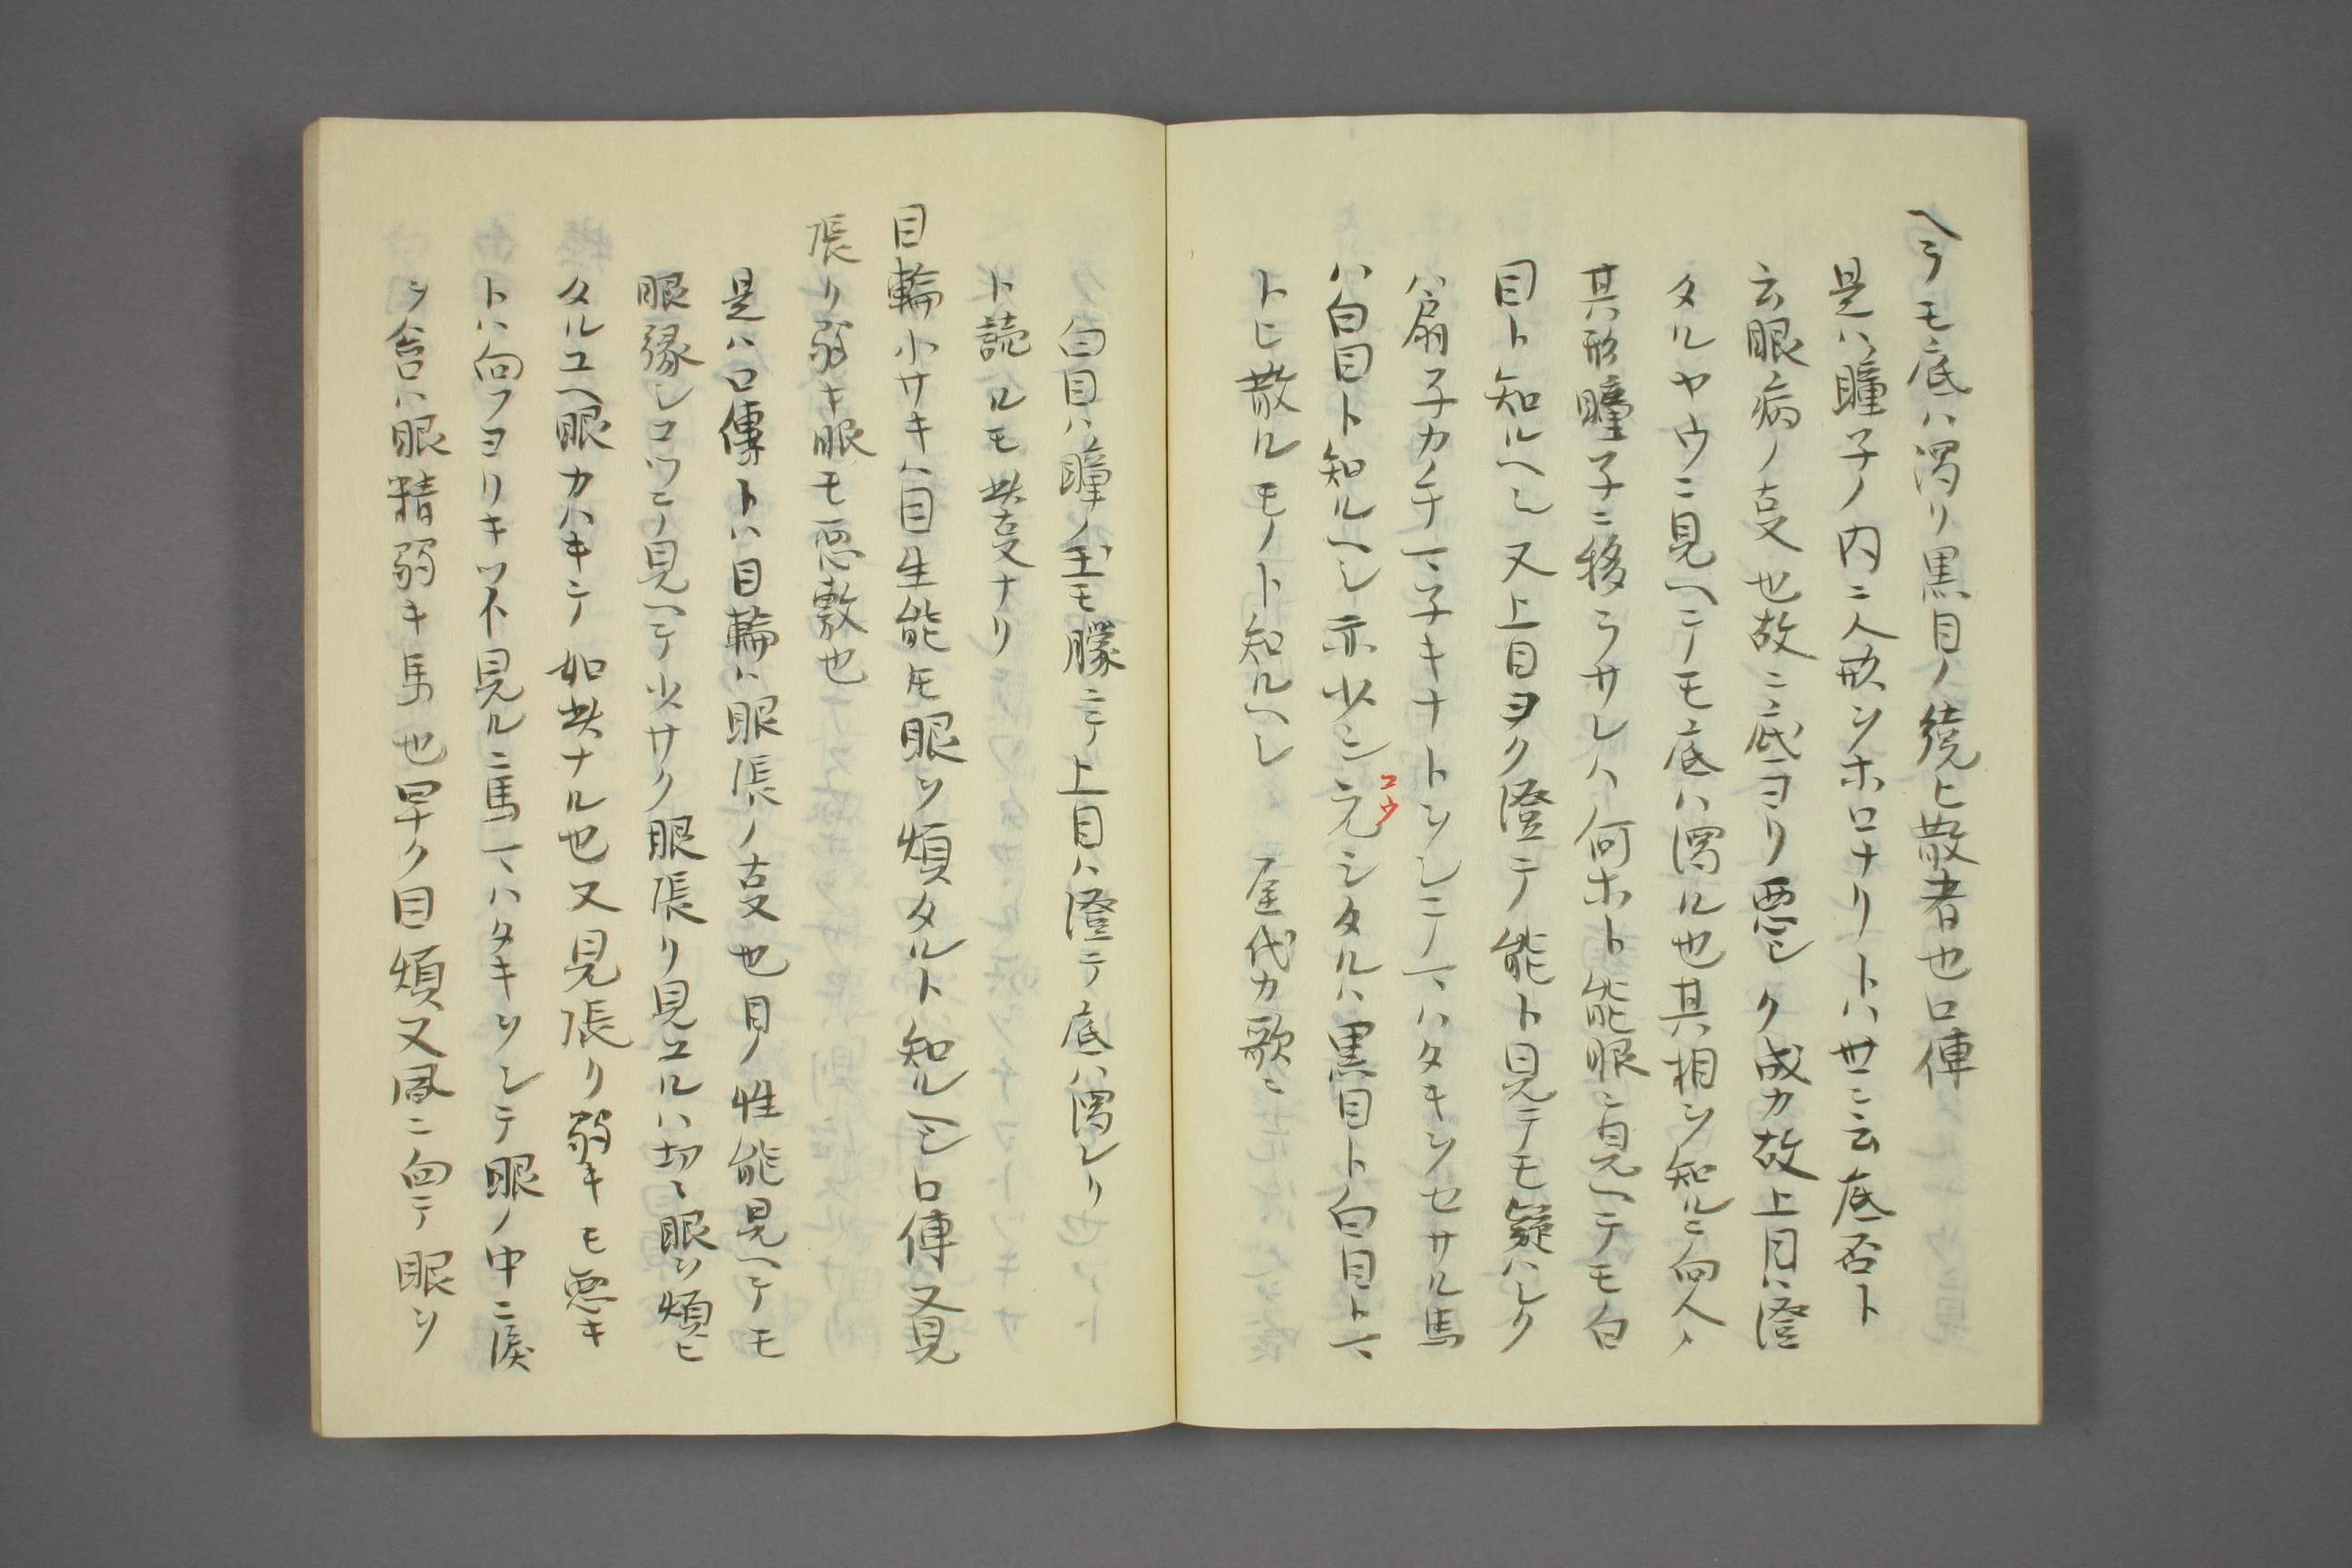 ヘテモ底ハ濁リ黒目ノ繞ヒ散者也口傳
是ハ瞳子ノ内ニ人形ヲホロナリトハ世ニ云底否ト
云眼病ノ支也故ニ底ヨリ悪シク成カ故上目ハ澄
タルヤウニ見ヘテモ底ハ濁ル也其相ヲ知ルニ向人ノ
其形瞳子ニ移ラサレハ何ホト能眼ニ見ヘテモ白
目ト知ルヘシ又上目ヨク澄テ能ト見テモ疑ハシク
ハ扇子カノチマ子キナトシテマハタキヲセサル馬
ハ白目ト知ルヘシ亦少シ元シタルハ黒目ト白目トマ
コウ
トヒ散ルモノト知ルヘシ 屋代カ歌ニ
白目ハ瞳ノ玉モ朦ニテ上目ハ澄テ底ハ濁レリ
ト読ルモ此支ナリ
目輪小サキハ目生能モ眼ヲ煩タルト知ルヘシ口傳又見
張リ弱キ眼モ悪敷也
是ハ口傳トハ目輪ハ眼張ノ支也目ノ性能見ヘテモ
眼縁シコツテ見ヘテ少サク眼張リ見エルハ切々眼ヲ煩ヒ
タルユヘ眼カハキテ如此ナル也又見張リ弱キモ悪キ
トハ向フヨリキツト見ルニ馬マハタキヲシテ眼ノ中ニ涙
ヲ含ハ眼精弱キ馬也早ク目煩又風ニ向テ眼ヲ